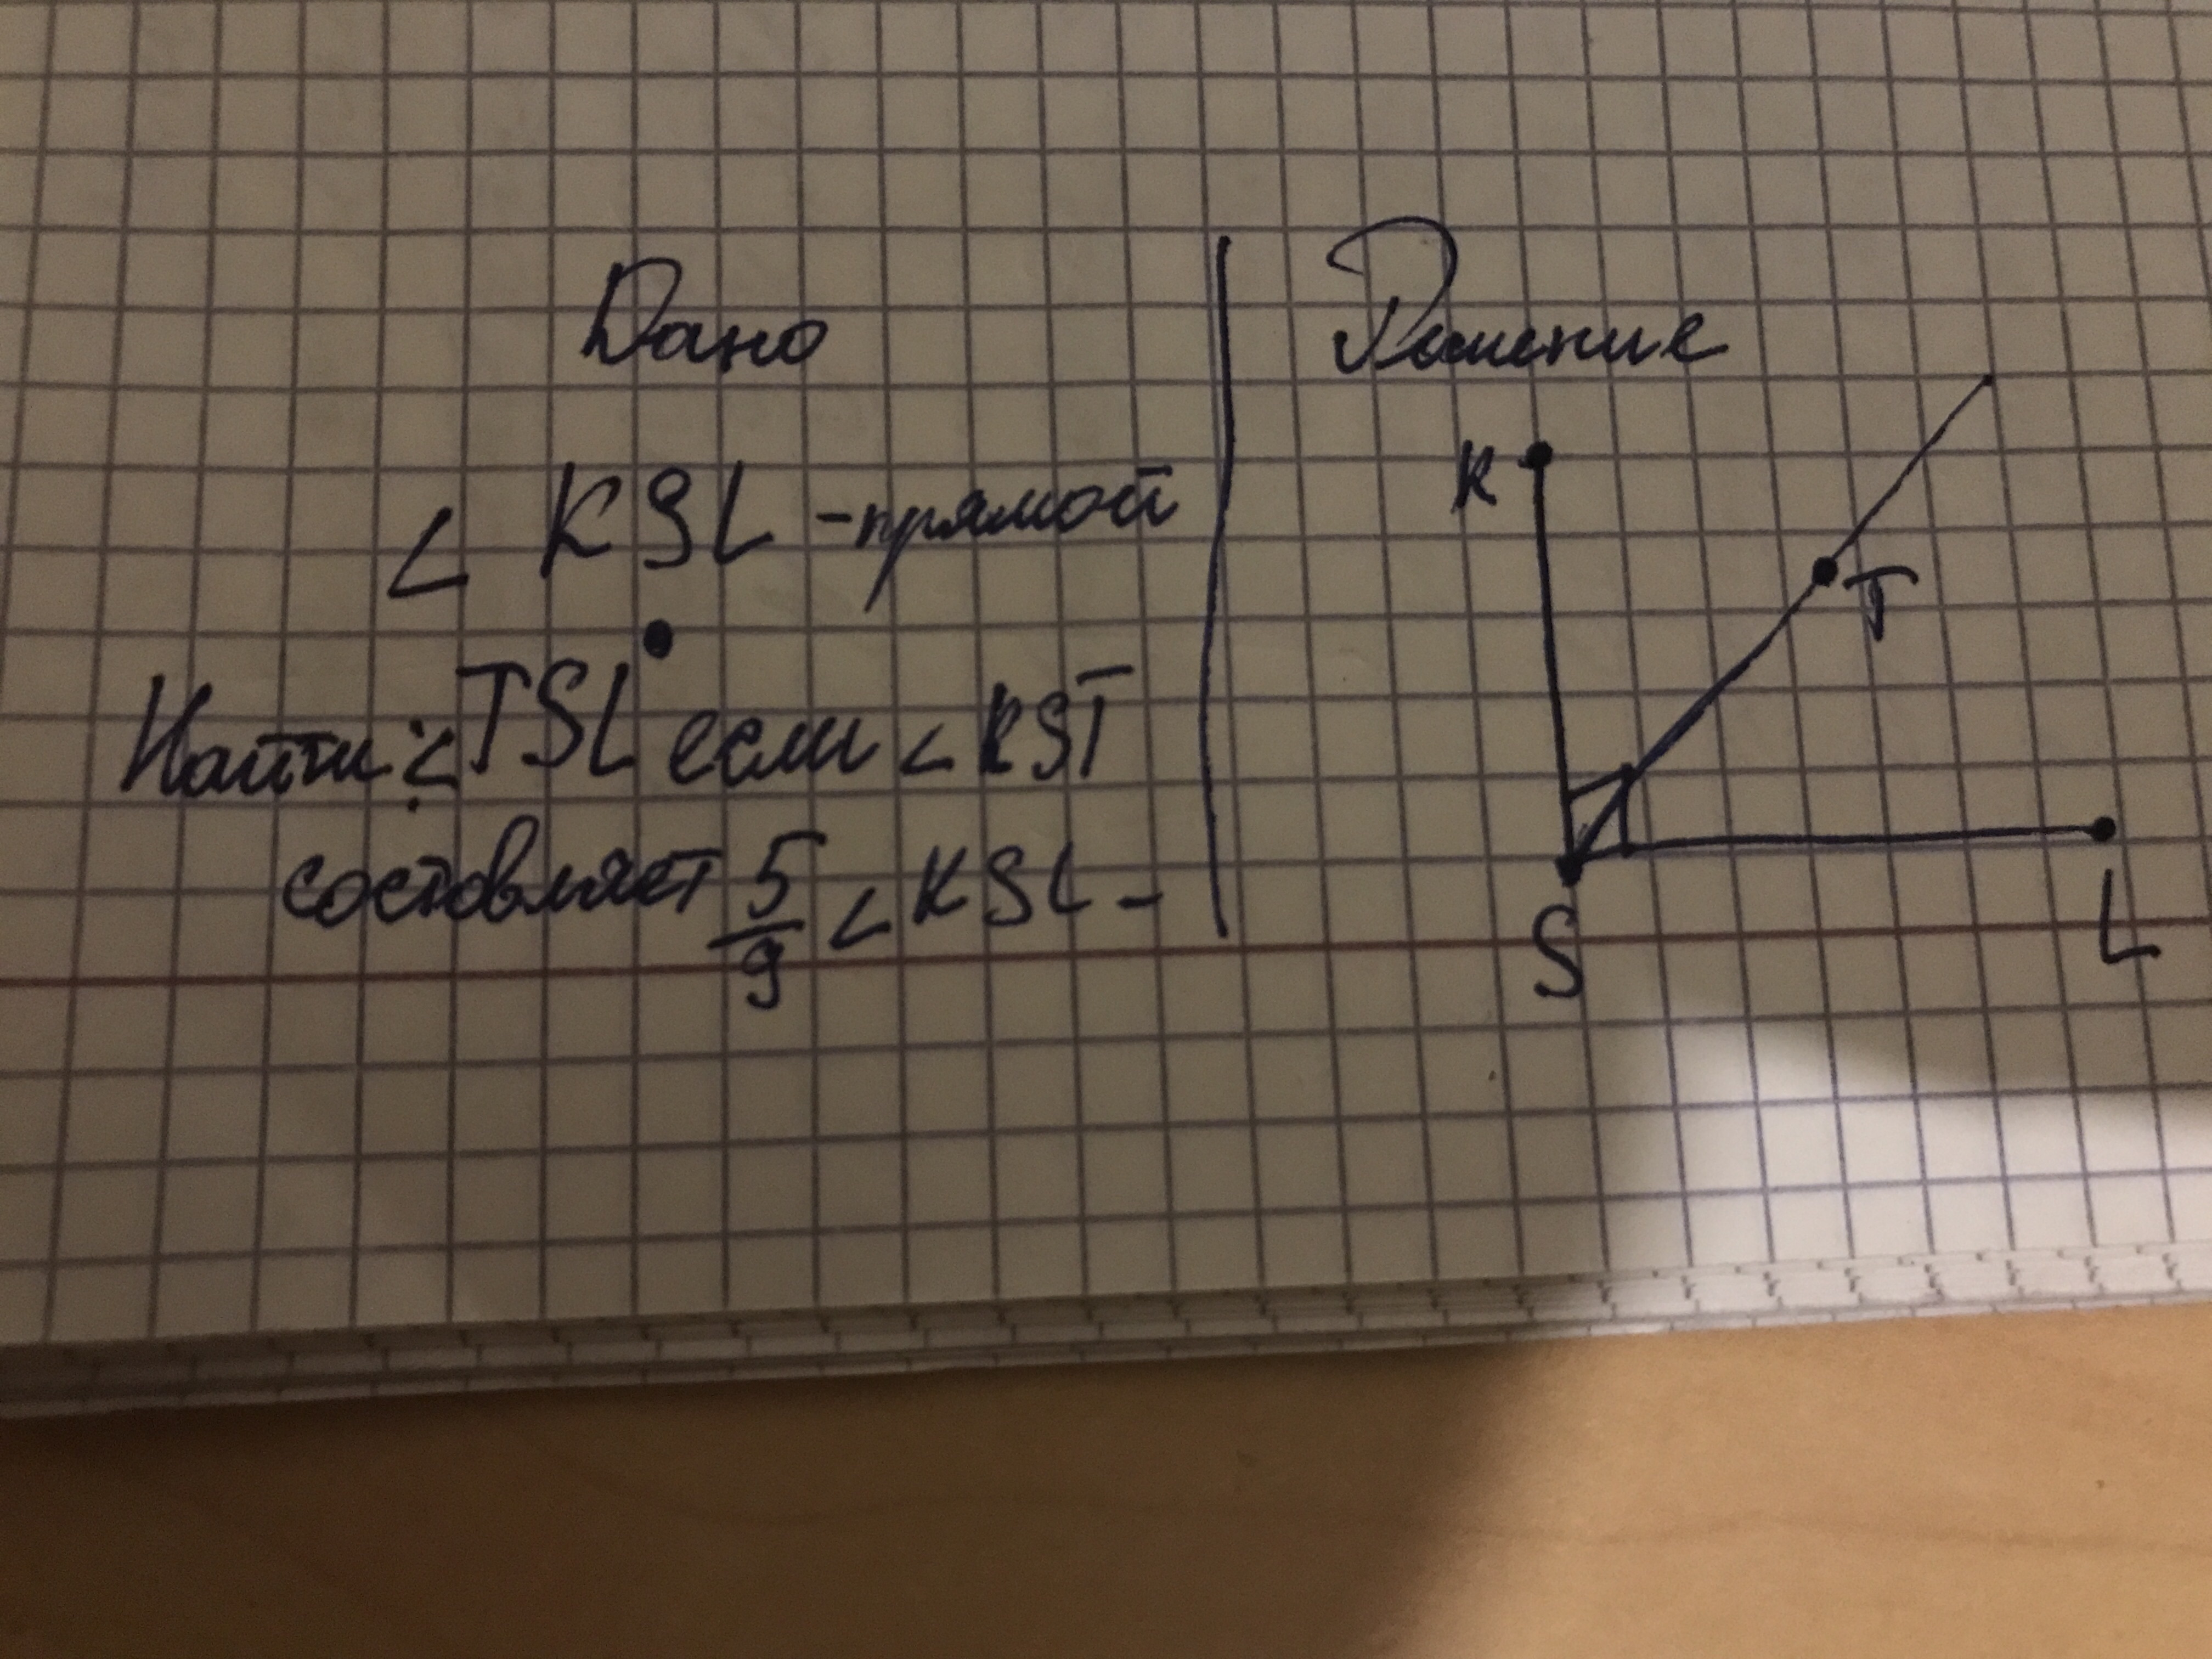 Дано
∠ KSL - прямой
Найти: ∠TSL если ∠ KST
состовляет 5/9 ∠ KSL -
Решение
K
T
S
L